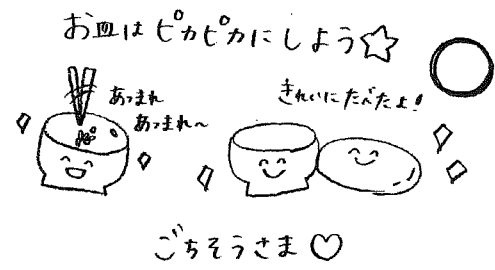 お皿は ピカピカに しよう☆
あつまれ
あつまれ〜
きれいに たべたよ!
ごちそうさま♡